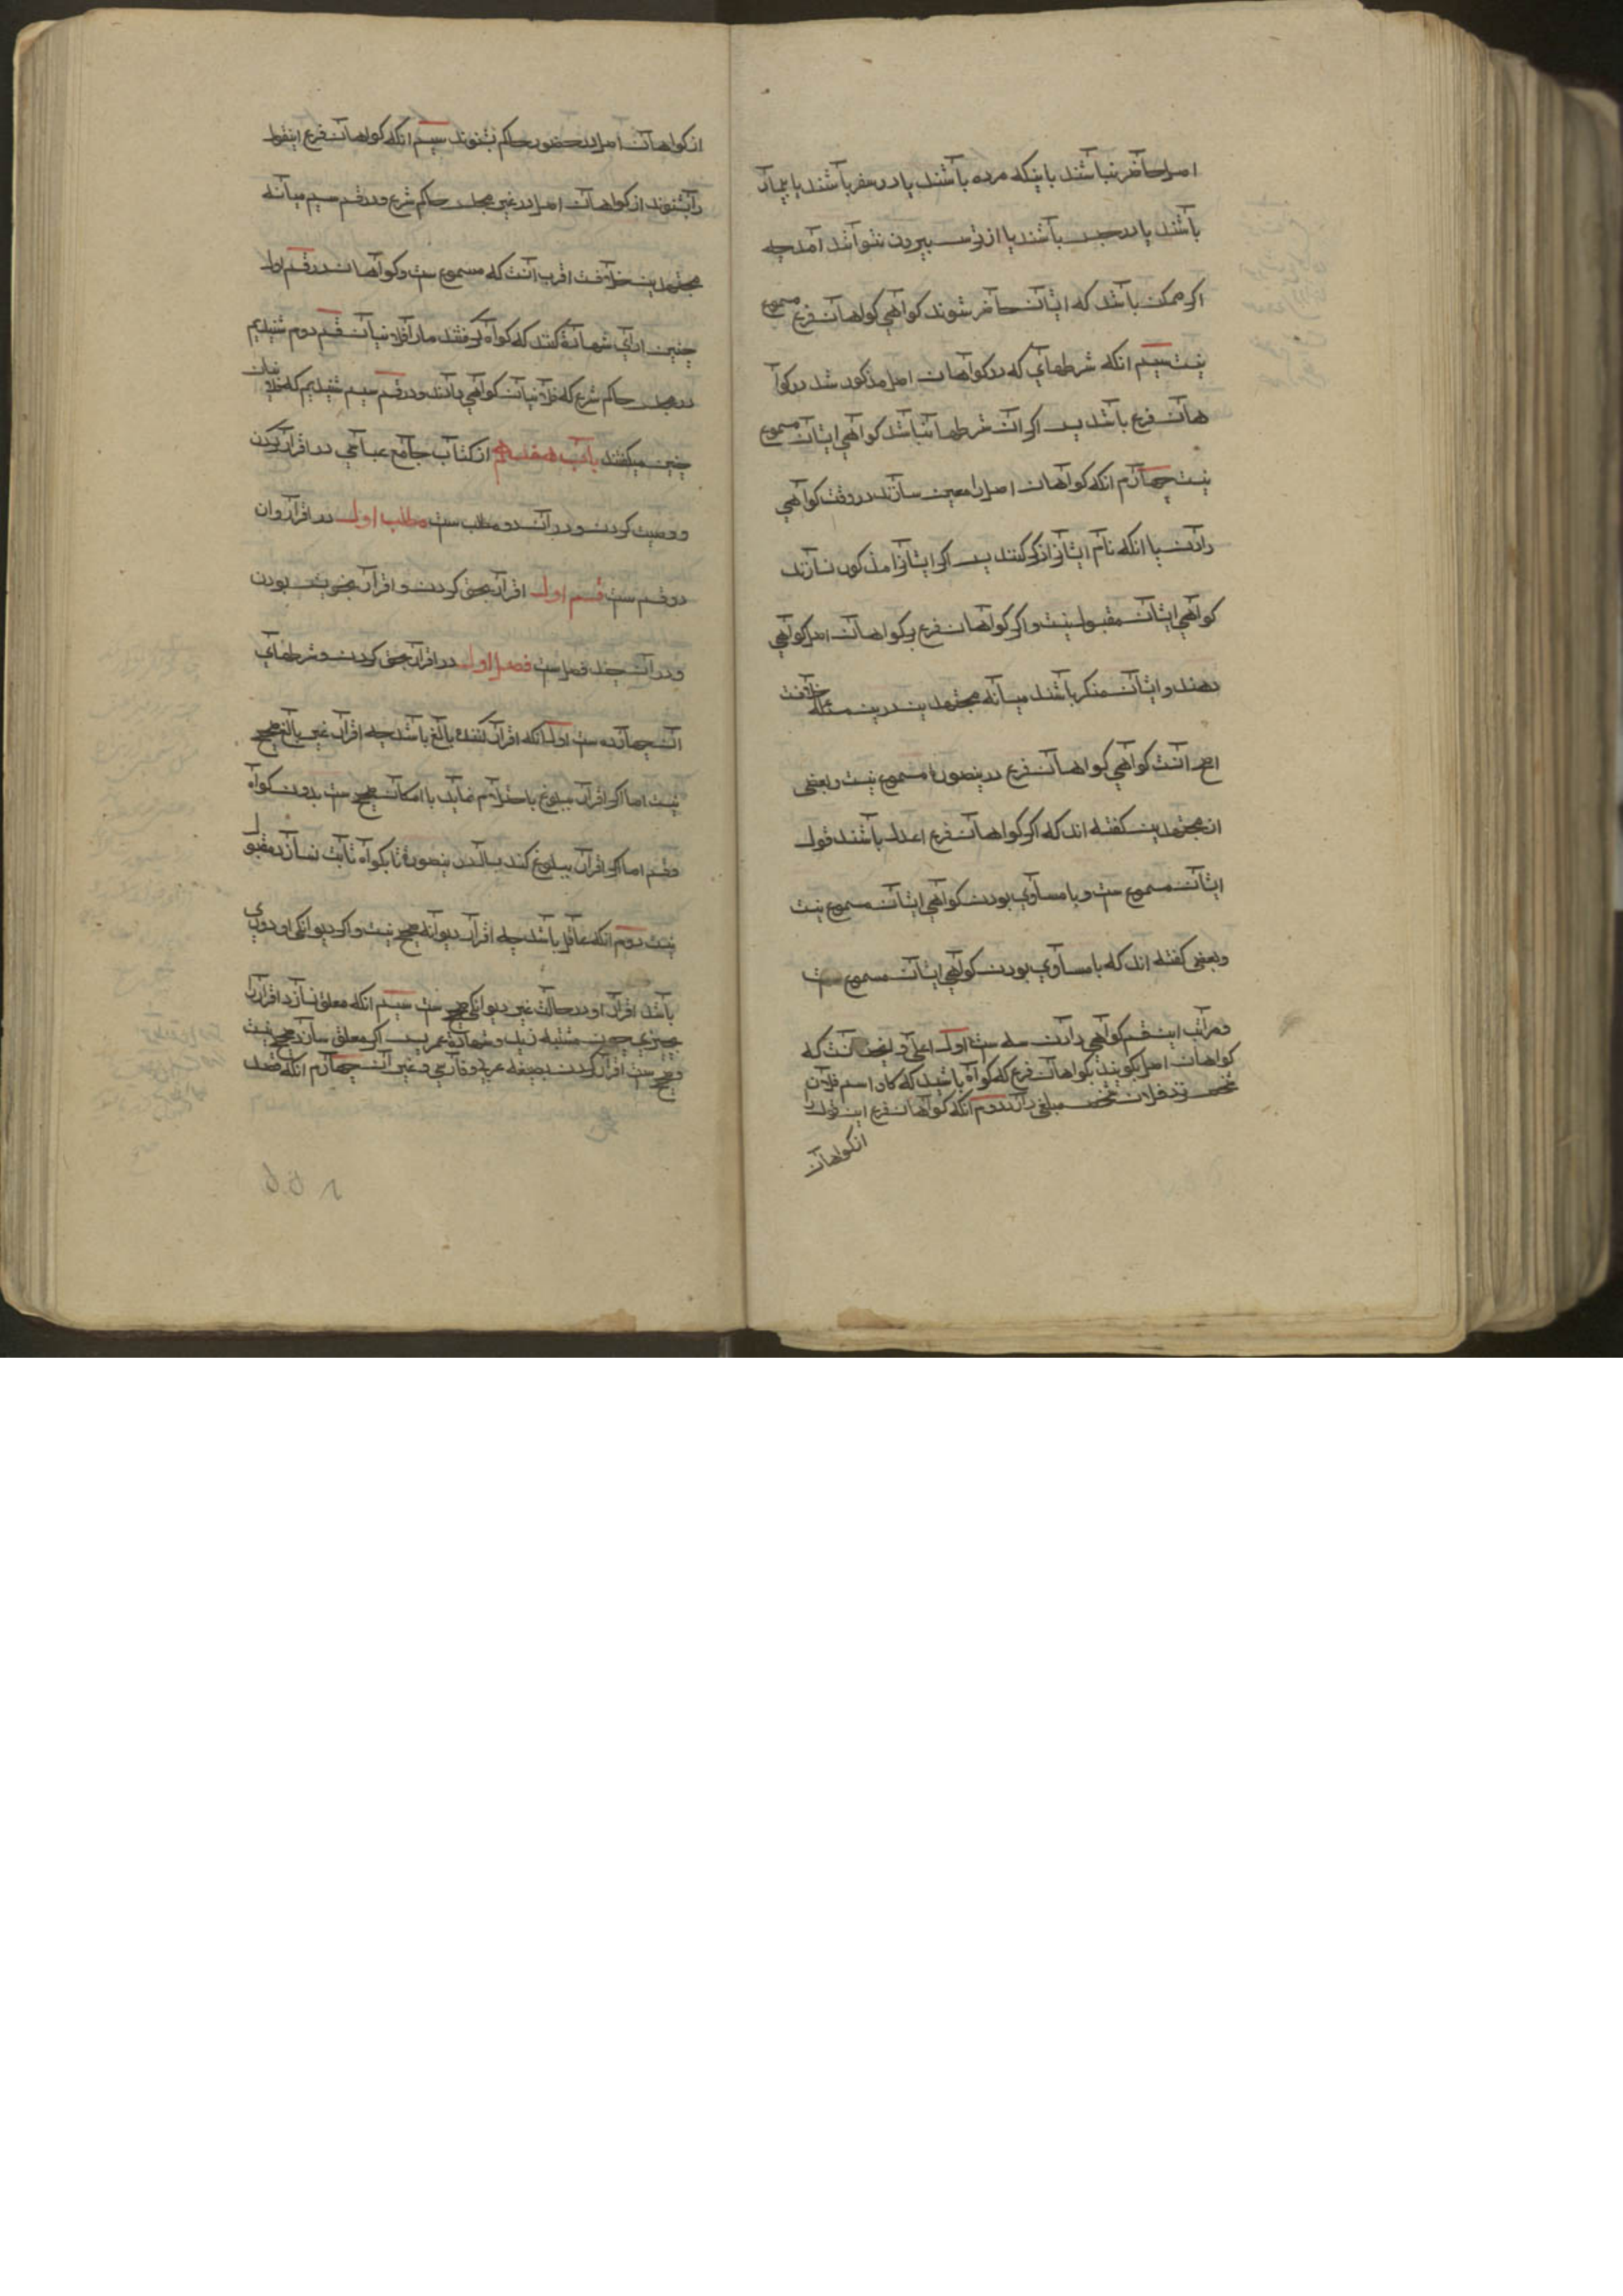 اصل حاضر نباشند باینکه مرده باشند یا در سفر باشند یا بیمار
باشند یا در حبس باشند یا از ترس بیرون نتوانند آمد چه
اگر ممکن باشد که ایشان حاضر شوند گواهی گواهان فرع مسموع
نیست سیم انکه شرطهای که در گواهان اصل مذکور شد در گوا
هان فرع باشد پس اگر ان شرطها نباشد گواهی ایشان مسموع
نیست چهارم انکه گواهان اصل را معین سازند در وقت گواهی
دادن با انکه نام ایشانرا ذکر کنند پس اگر ایشانرا مذکور نسازند
گواهی ایشان مقبول نیست و اگر گواهان فرع بر گواهان اصل گواهی
دهند و ایشان منکر باشند میانه مجتهدین درین مسئله خلافست
اصح انست گواهی گواهان فرع درینصورة مسموع نیست و بعضی
از مجتهدین گفته اند که اگر گواهان فرع اعدل باشند قول
ایشان مسموع ست و با مساوی بودن گواهی ایشان مسموع نیست
و بعضی گفته اند که با مساوی بودن گواهی ایشان مسموع ست
و مراتب این قسم گواهی دادن سه ست اول اعلی و انست که
گواهان اصل گویند بگواهان فرع که گواه باشید که فلان
شخص نزد فلان شخص مبلغی دارد دوم انکه گواهان فرع این قول را
از گواهان
از گواهان اصل در حضور حاکم بشنوند سیم انکه گواهان فرع اینقول
را بشنوند از گواهان اصل در غیر مجلس حاکم شرع و در قسم سیم میانه
مجتهدین خلافست اقرب انست که مسموع ست و گواهان در قسم اول
چنین ادای شهادة کنند که گواه گرفتند ما را فلانیان قسم دوم شنیدیم
در مجلس حاکم شرع که فلانیان گواهی دادند و در قسم سیم شنیدیم که فلانیان
چنین میگفتند باب هفدهم از کتاب جامع عباسی در اقرار کردن
و وصیت کردن و در ان دو مطلب ست مطلب اول در اقرار و ان
دو قسم ست قسم اول اقرار بحق کردن و اقرار بخویشی بودن
و در ان چند فصل ست فصل اول در اقرار بحق کردن و شرطهای
ان چهارده ست اول انکه اقرار کننده بالغ باشد چه اقرار غیر بالغ صحیح
نیست اما اگر اقرار ببلوغ باحتلام نماید با امکان صحیح ست بدون گواه
و قسم اما اگر اقرار ببلوغ کند بسال درینصورة تا بگواه ثابت نسازد مقبول
نیست دوم انکه عاقل باشد چه اقرار دیوانه صحیح نیست و اگر دیوانگی او دوری
باشد اقرار او در حالت غیر دیوانگی صحیح ست سیم انکه معلق نسازد اقرار را
بچیزی چون مشیه زید و شهادة عمر پس اگر معلق سازد صحیح نیست
و صحیح ست اقرار کردن بصیغه عربی و فارسی و غیر ان چهارم انکه قصد